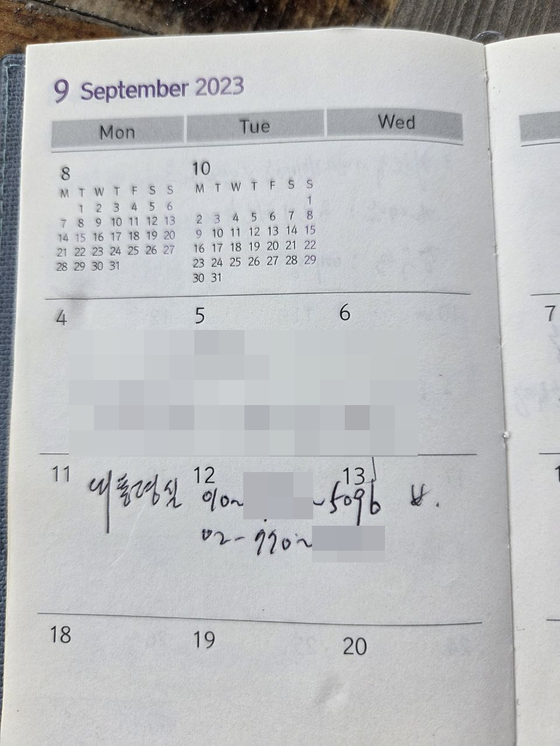 9 September 2023
Mon Tue Wed
8
M T W T F S S
1 2 3 4 5 6
7 8 9 10 11 12 13
14 15 16 17 18 19 20
21 22 23 24 25 26 27
28 29 30 31
10
M T W T F S S
1
2 3 4 5 6 7 8
9 10 11 12 13 14 15
16 17 18 19 20 21 22
23 24 25 26 27 28 29
30 31
4 5 6 7
11 12 13
대통령실 010~ ~5096
02-770~
18 19 20